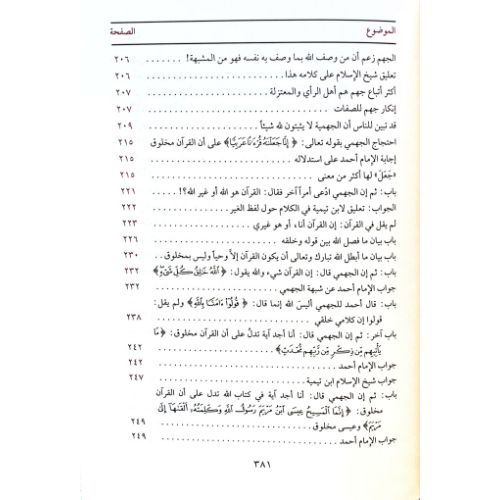 الموضوع الصفحة
الجهم زعم أن من وصف الله بما وصف به نفسه فهو من المشبهة! . . . . . . . ٢٠٦
تعليق شيخ الإسلام على كلامه هذا . . . . . . . . . . . . . . . . . . . . ٢٠٦
أكثر أتباع جهم هم أهل الرأي والمعتزلة . . . . . . . . . . . . . . . . . . ٢٠٧
إنكار جهم للصفات . . . . . . . . . . . . . . . . . . . . . . . . . . . ٢٠٧
قد تبين للناس أن الجهمية لا يثبتون لله شيئاً . . . . . . . . . . . . . . . ٢٠٩
احتجاج الجهمي بقوله تعالى: ﴿إِنَّا جَعَلْنَاهُ قُرْءَانًا عَرَبِيًّا﴾ على أن القرآن مخلوق ٢١٥
إجابة الإمام أحمد على استدلاله . . . . . . . . . . . . . . . . . . . . . ٢١٥
«جَعَلَ» لها أكثر من معنى . . . . . . . . . . . . . . . . . . . . . . . ٢١٥
باب: ثم إن الجهمي ادّعى أمراً آخر فقال: القرآن هو الله أو غير الله؟! . . . . ٢٢١
الجواب: تعليق لابن تيمية في الكلام حول لفظ الغير . . . . . . . . . . . . ٢٢٢
لم يقل في القرآن: إن القرآن أنا، أو هو غيري . . . . . . . . . . . . . . . ٢٢٤
باب بيان ما فصل الله بين قوله وخلقه . . . . . . . . . . . . . . . . . . ٢٢٦
باب بيان ما أبطل الله تبارك وتعالى أن يكون القرآن إلاَّ وحياً وليس بمخلوق . . ٢٣٠
باب: ثم إن الجهمي قال: إن القرآن شيء والله يقول: ﴿اللَّهُ خَالِقُ كُلِّ شَيْءٍ﴾ ٢٣٢
جواب الإمام أحمد عن شبهة الجهمي . . . . . . . . . . . . . . . . . . . ٢٣٢
باب: قال أحمد للجهمي أليسَ الله إنما قال: ﴿قُولُوا ءَامَنَّا بِاللَّهِ﴾ ولم يقل:
قولوا إن كلامي خلقي . . . . . . . . . . . . . . . . . . . . . . . . . ٢٣٨
باب آخر: ثم إن الجهمي قال: أنا أجد آية تدلُّ على أن القرآن مخلوق: ﴿مَا
يَأْتِيهِم مِّن ذِكْرٍ مِّن رَّبِّهِم مُّحْدَثٍ﴾ . . . . . . . . . . . . . . . . . . . . ٢٤٢
جواب الإمام أحمد . . . . . . . . . . . . . . . . . . . . . . . . . . . ٢٤٢
جواب شيخ الإسلام ابن تيمية . . . . . . . . . . . . . . . . . . . . . . ٢٤٧
باب: ثم إن الجهمي قال: أنا أجد آية في كتاب الله تدل على أن القرآن
مخلوق: ﴿إِنَّمَا الْمَسِيحُ عِيسَى ابْنُ مَرْيَمَ رَسُولُ اللَّهِ وَكَلِمَتُهُ أَلْقَاهَا إِلَى
مَرْيَمَ﴾ وعيسى مخلوق . . . . . . . . . . . . . . . . . . . . . . . . . ٢٤٩
جواب الإمام أحمد . . . . . . . . . . . . . . . . . . . . . . . . . . . ٢٤٩
٣٨١